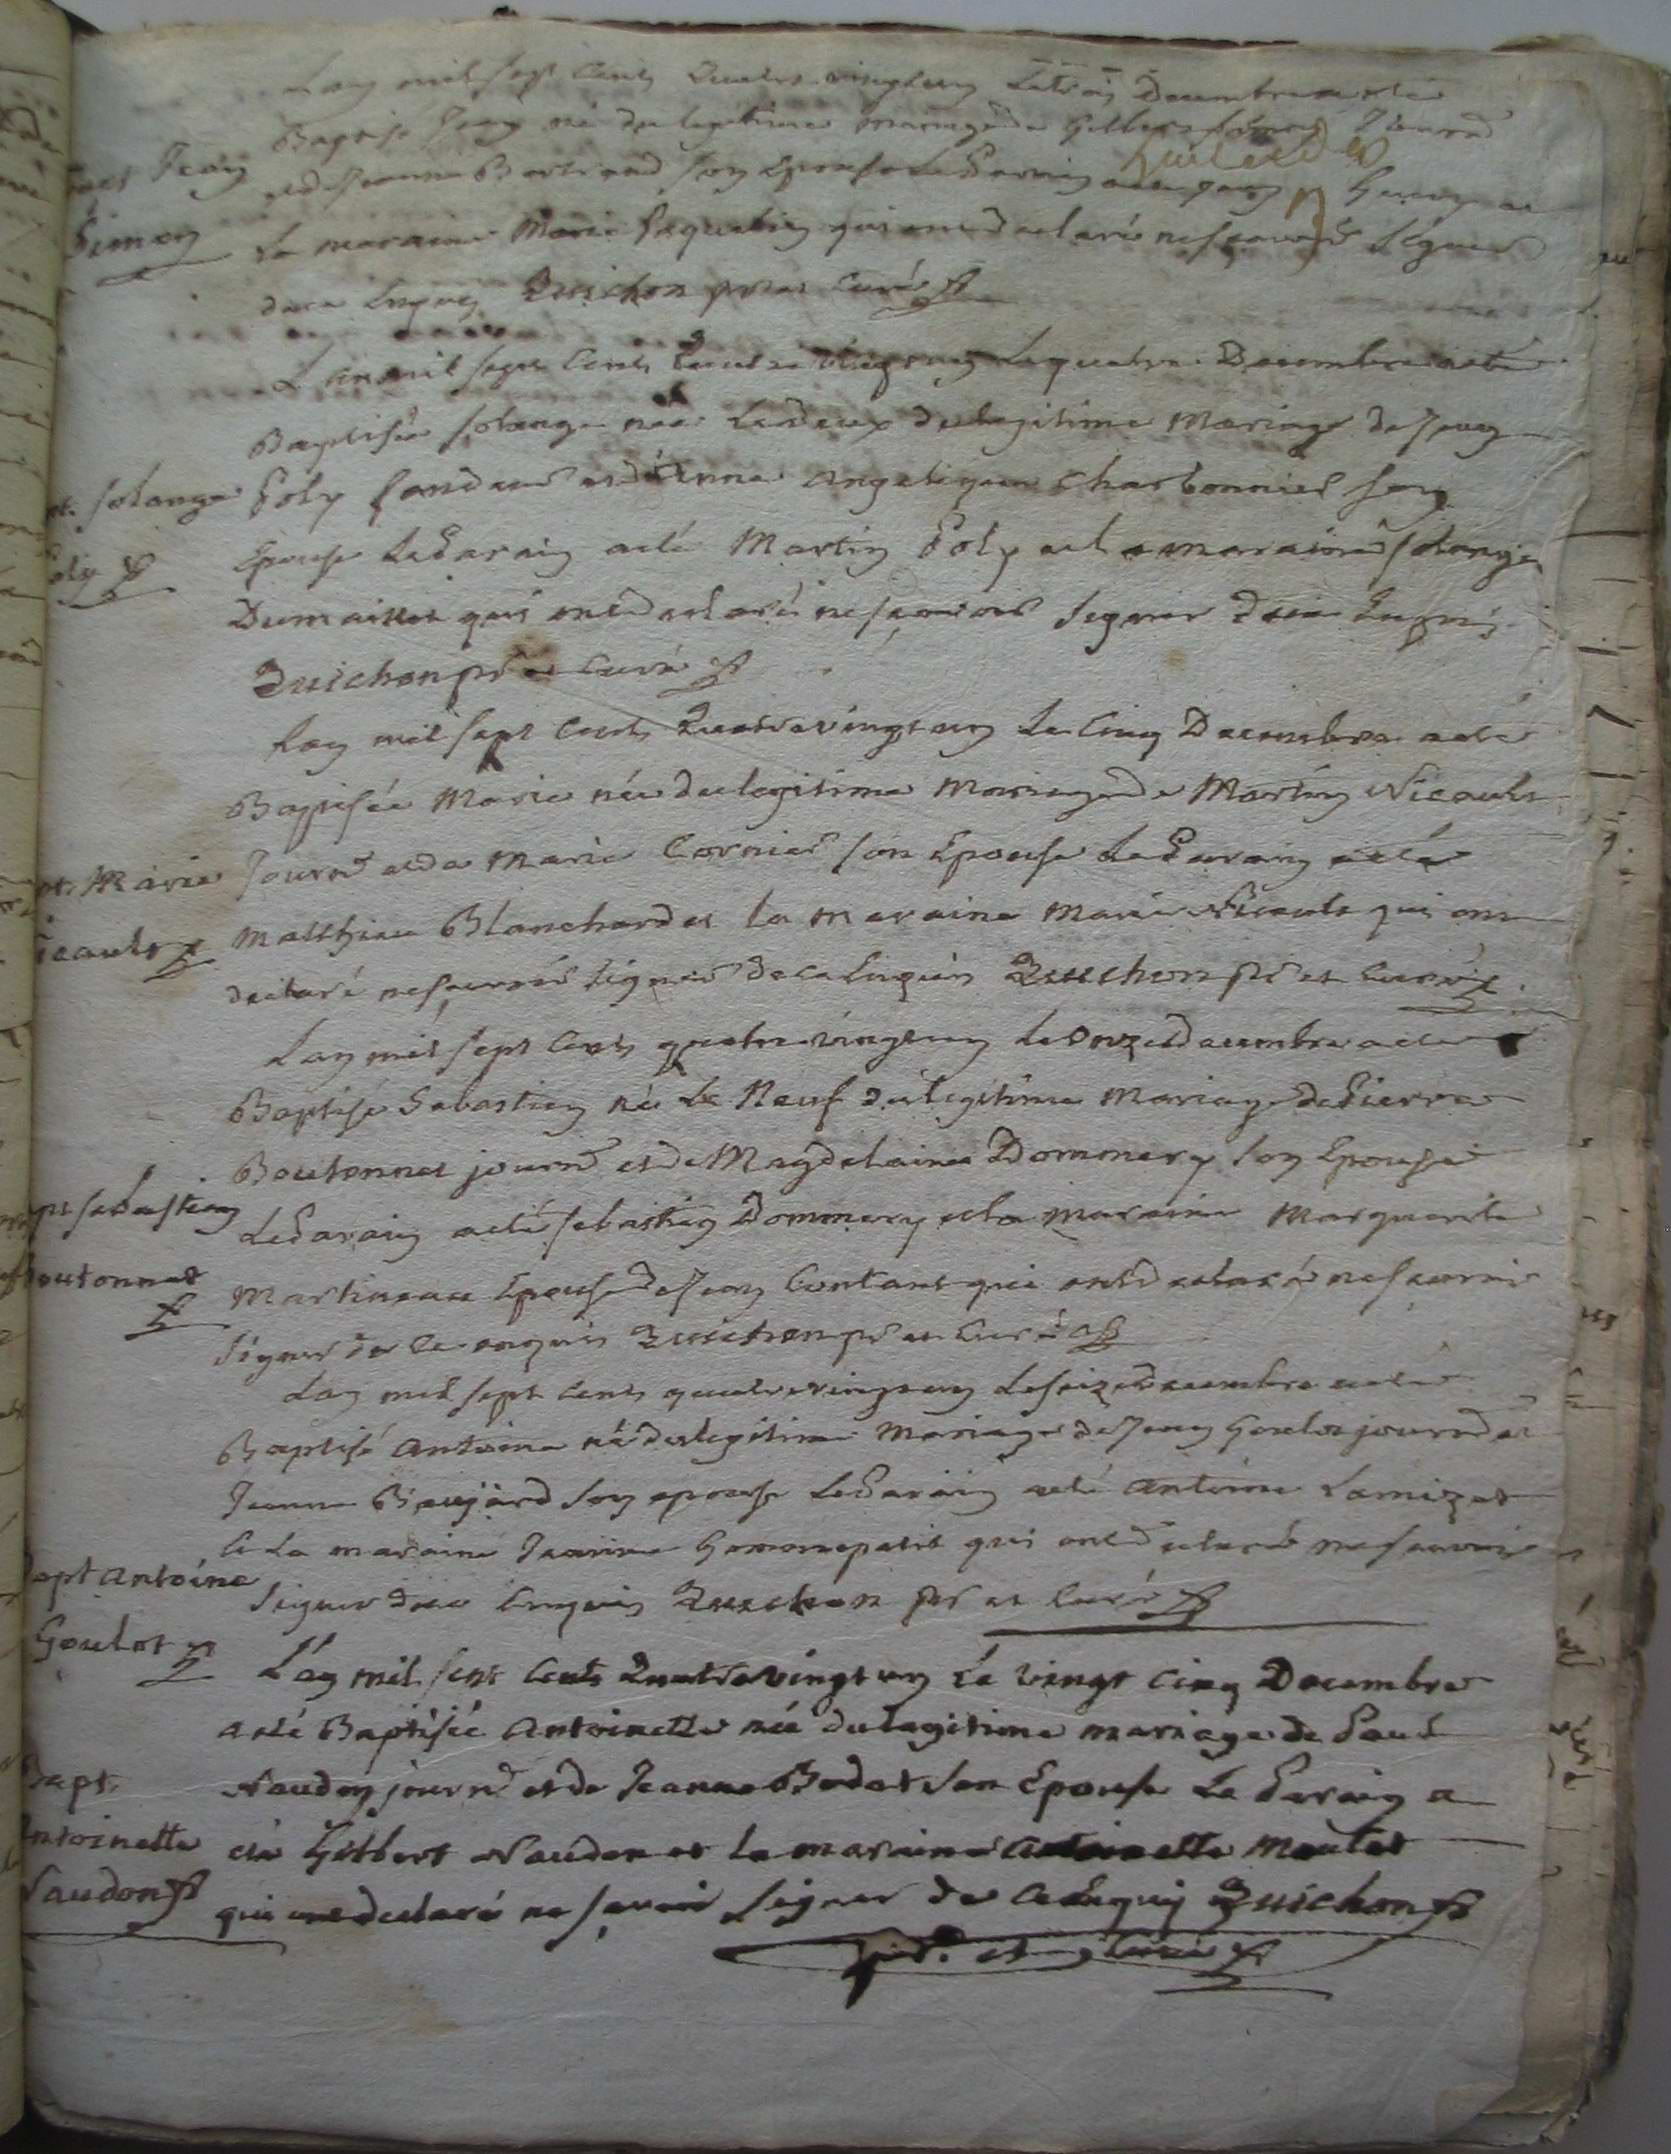 Lan mil sept Cents Quatre vingt un Le trois Decembre a eté
Baptisé Jean né du legitime mariage de Gilbert Simon Journ
Bapt Jean
et de Jeanne Bertrand son Epouse Le Parain a eté
Simon
La maraine Marie Paquetin qui ont declaré ne scavoir Signer
de ce Enquis Quichon ptre et Curé
L an mil sept Cents Quatre vingt un Le quatre Decembre a eté
Baptisée Solange née Le deux du legitime Mariage de Jean
pt. Solange
Poly et d'Anne Angelique Charbonnier son
Poly
Epouse Le Parain a eté Martin Poly et la maraine Solange
qui ont declaré ne scavoir Signer de ce Enquis
Quichon ptr et Curé
Lan mil sept Cents Quatre vingt un Le Cinq Decembre a eté
Baptisée Marie née du legitime Mariage de Martin Nicault
pt. Marie
Journr et de Marie Cornier son Epouse Le Parain a eté
Nicault
Matthieu Blanchard et la maraine Marie Nicault qui ont
declaré ne scavoir signer de ce Enquis Quichon ptr et Curé
Lan mil sept Cents quatre vingt un Le onze decembre a eté
Baptisé Sebastien né Le Neuf du legitime Mariage de Pierre
Boutonnet journr et de Magdelaine Dommery son Epouse
pt Sebastien
Le Parain a eté Sebastien Dommery et la maraine Marguerite
Boutonnet
Martineau Epouse de Jean Contant qui ont declaré ne scavoir
Signer de ce enquis Quichon ptr et Curé
Lan mil sept Cents quatre vingt un Le seize decembre a eté
Baptisé Antoine né du legitime Mariage de Jean Goulot journr et
Jeanne Baujard son epouse Le Parain a eté Antoine Lamizet
et La maraine Jeanne qui ont declaré ne scavoir
Bapt Antoine
Signer de ce Enquis Quichon ptr et Curé
Goulot
L'an mil sept Cents Quatre vingt un Le vingt Cinq Decembre
a eté Baptisée Antoinette née du legitime mariage de Paul
Bapt.
Naudon journr et de Jeanne Bodat son Epouse Le Parain a
Antoinette
eté Gilbert Naudon et la maraine Antoinette Moulet
Naudon
qui ont declaré ne scavoir signer de ce Enquis Quichon
ptr. et Curé